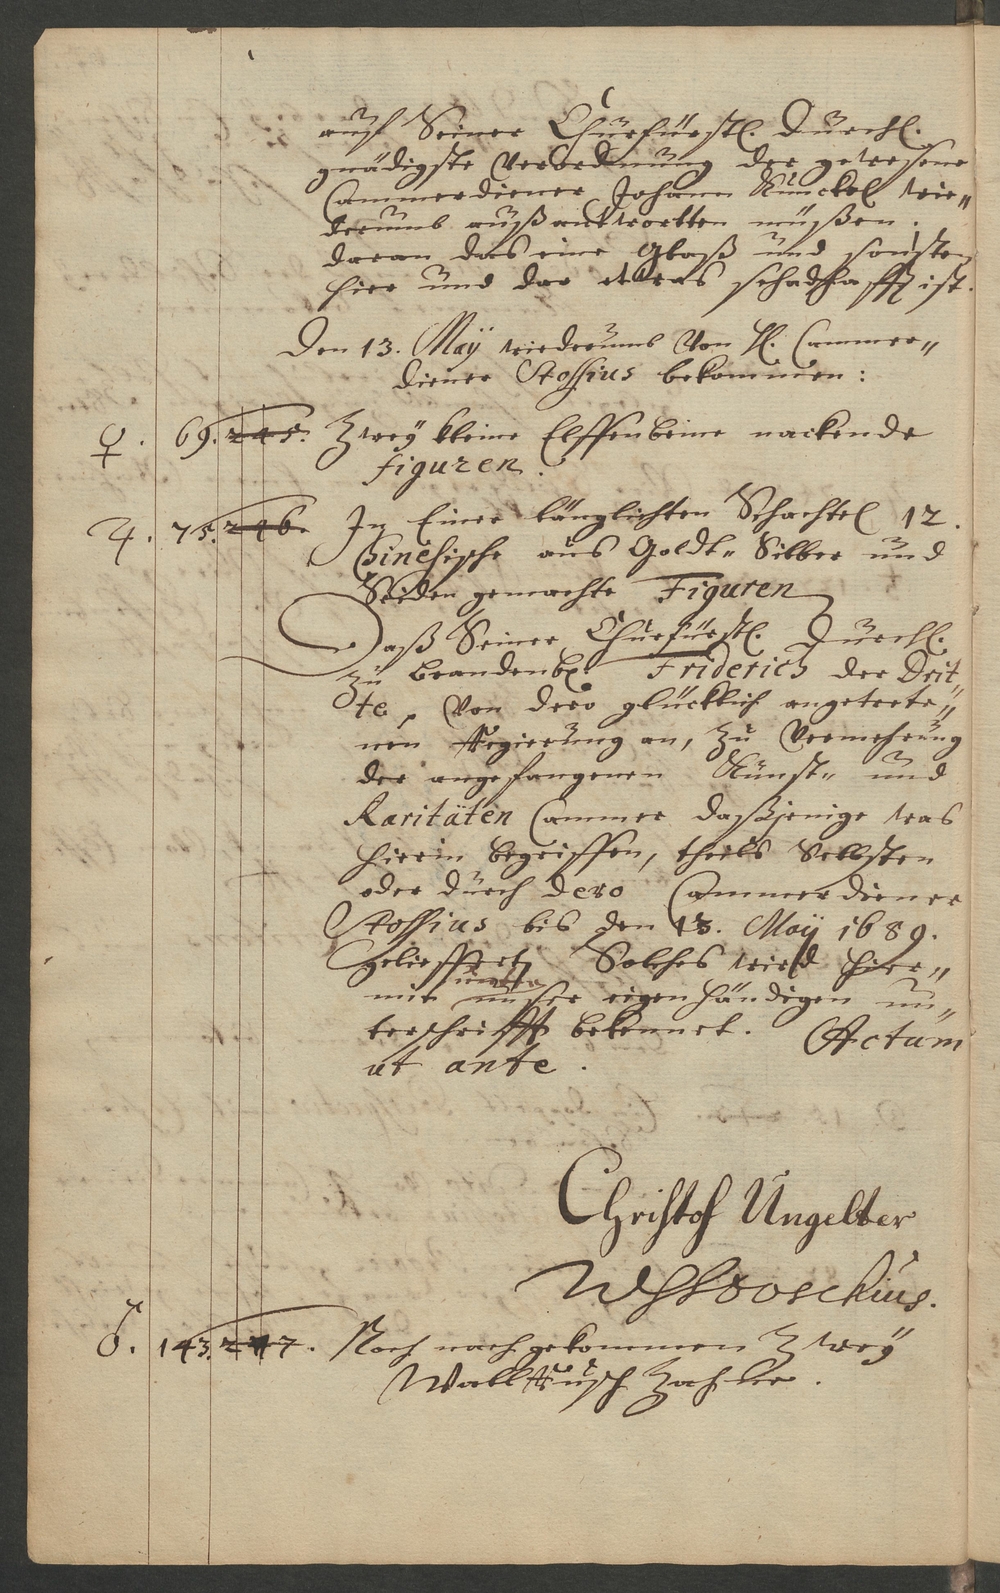 auf Seiner Churfürstl. Durchl.
gnädigste Verordnung der gewesene
Cammerdiener Johann Kunckel wie„
derumb außantwortten müßen.
daran das eine Glaß und sonsten
hier und dar etwas schadhafft ist.
Den 13. Maÿ wiederumb von H. Cammer„
diener Stossius bekommen:
♀. 69. 245. Zweÿ kleine Elffenbeine nackende
figuren.
♃. 75. 246. In Einer länglichten Schachtel 12.
Chinesische aus Goldt„ Silber und
Seiden gemachte Figuren
Daß Seiner Churfürstl. Durchl.
zu Brandenb. Friderich der Drit„
te, von dero glücklich angetrete„
nen Regierung an, zu Vermehrung
der angefangenen Kunst„ und
Raritäten Cammer dasjenige was
hierin begriffen, theils Selbsten
oder durch dero Cammerdiener
Stossius bis den 13. Maÿ 1689.
geliefert, Solches wird hier„
mit unter
unser eigenhändigen un„
terschrifft bekennet. Actum
ut ante.
Christof Ungelter
♂. 143. 247. Noch nachgekommen Zweÿ
Wallfisch Zähne.